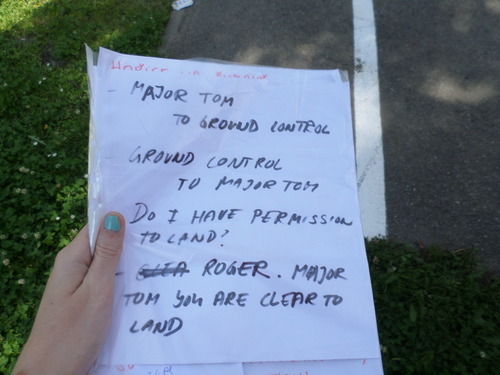 - MAJOR TOM
TO GROUND CONTROL
GROUND CONTROL
TO MAJOR TOM
DO I HAVE PERMISSION
TO LAND?
- ROGER. MAJOR
TOM YOU ARE CLEAR TO
LAND